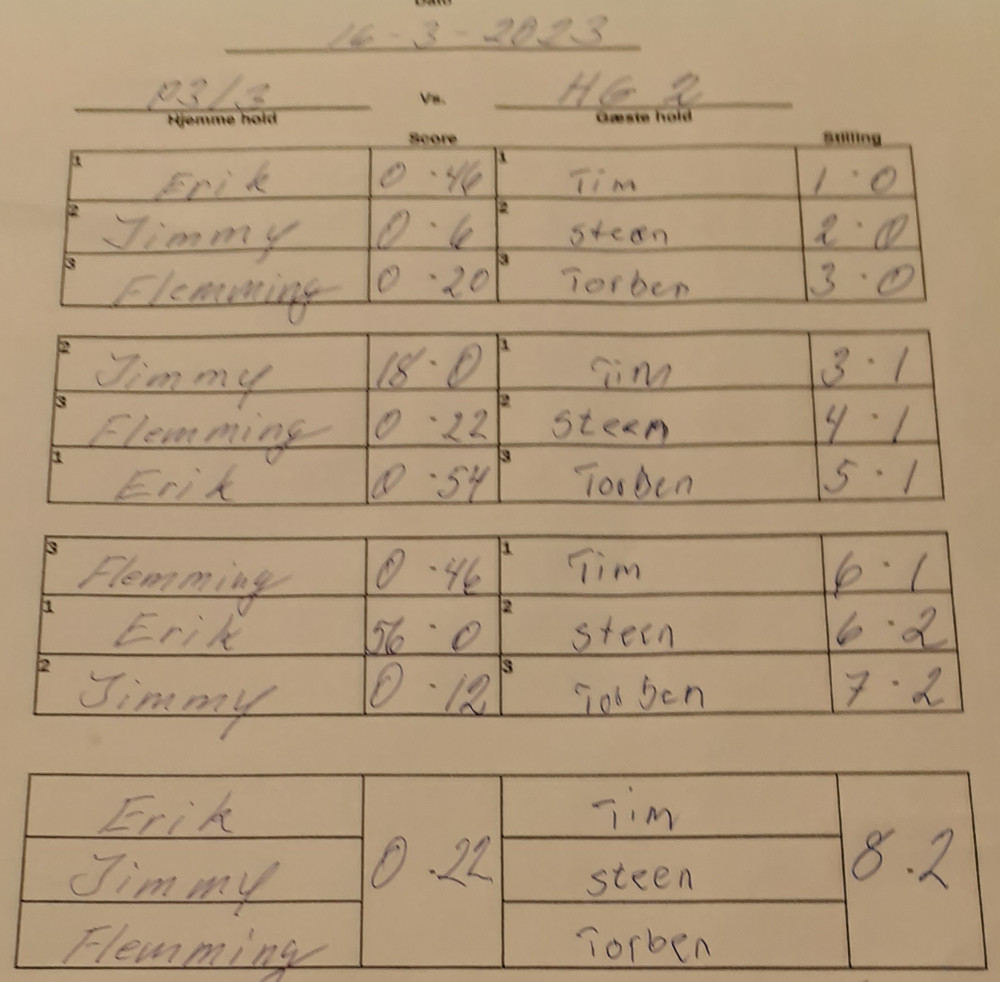 Dato
16-3-2023
P3/3 Vs. HG 2
Hjemme hold Gæste hold
Score Stilling
1 Erik 0 · 46 1 Tim 1 · 0
2 Jimmy 0 · 6 2 steen 2 · 0
3 Flemming 0 · 20 3 Torben 3 · 0
2 Jimmy 18 · 0 1 Tim 3 · 1
3 Flemming 0 · 22 2 Steen 4 · 1
1 Erik 0 · 54 3 Torben 5 · 1
3 Flemming 0 · 46 1 Tim 6 · 1
1 Erik 56 · 0 2 steen 6 · 2
2 Jimmy 0 · 12 3 Torben 7 · 2
Erik Tim
Jimmy 0 · 22 steen 8 · 2
Flemming Torben